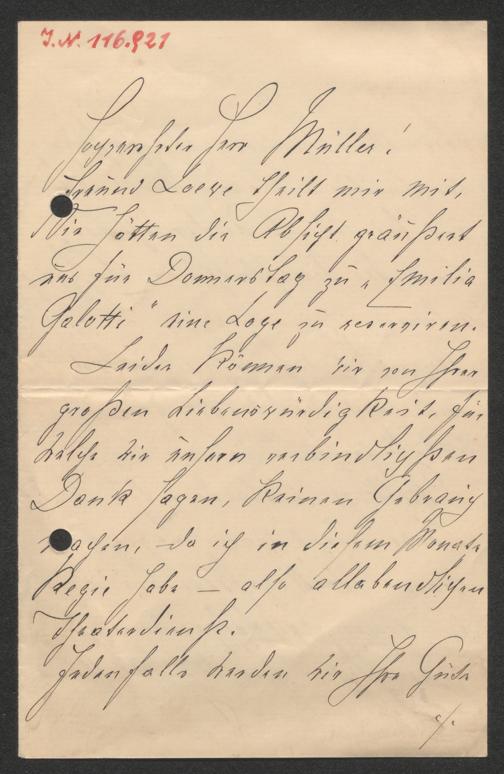 J.N. 116.921
Hochverehrter Herr Müller!
Freund Loewe theilt mir mit,
Sie hätten die Absicht geäußert
uns für Donnerstag zu „Emilia
Galotti" eine Loge zu reserviren.
Leider können wir von Ihrer
großen Liebenswürdigkeit, für
welche wir unsern verbindlichsten
Dank sagen, keinen Gebrauch
machen, da ich in diesem Monate
Regie habe – also allabendlichen
Theaterdienst.
Jedenfalls werden wir Ihre Güte
./.